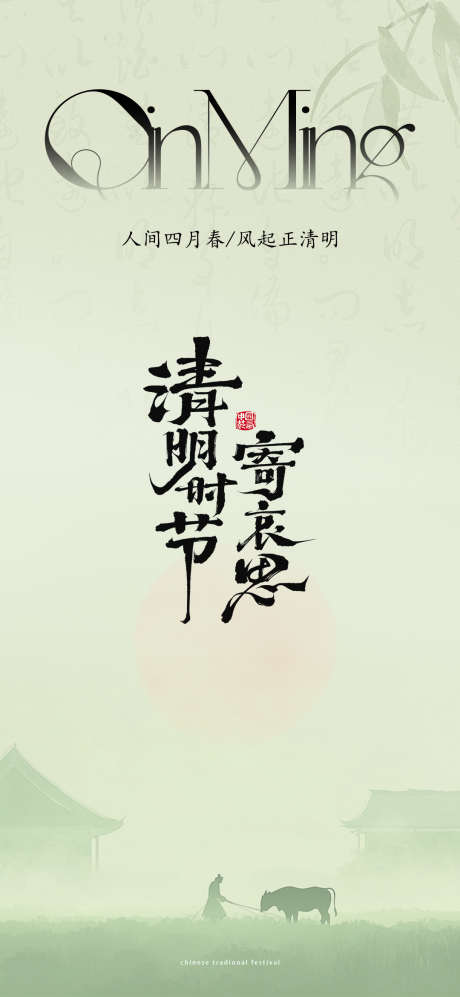 QinMing
人间四月春/风起正清明
清明时节
寄哀思
chinese tradional festival